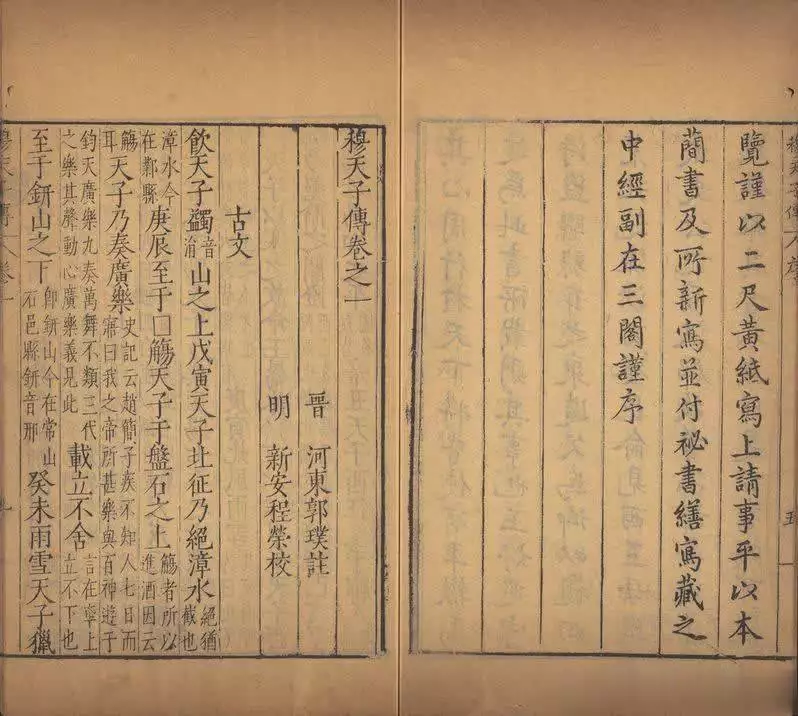 覽謹以二尺黃紙寫上請事平以本
蕳書及所新寫並付祕書繕寫藏之
中經副在三閣謹序
穆天子傳卷之一
晉 河東郭璞註
明 新安程榮校
古文
飲天子蠲音涓山之上戊寅天子北征乃絕漳水絕猶截也
漳水今在鄴縣庚辰至于□觴天子于盤石之上觴者所以進酒因云
觴耳天子乃奏廣樂史記云趙簡子疾不知人七日而寤曰我之帝所甚樂與百神遊于
鈞天廣樂九奏萬舞不類三代之樂其聲動心廣樂義見此載立不舍言在車上立不下也
至于鈃山之下即鈃山今在常山石邑縣鈃音邢癸未雨雪天子獵